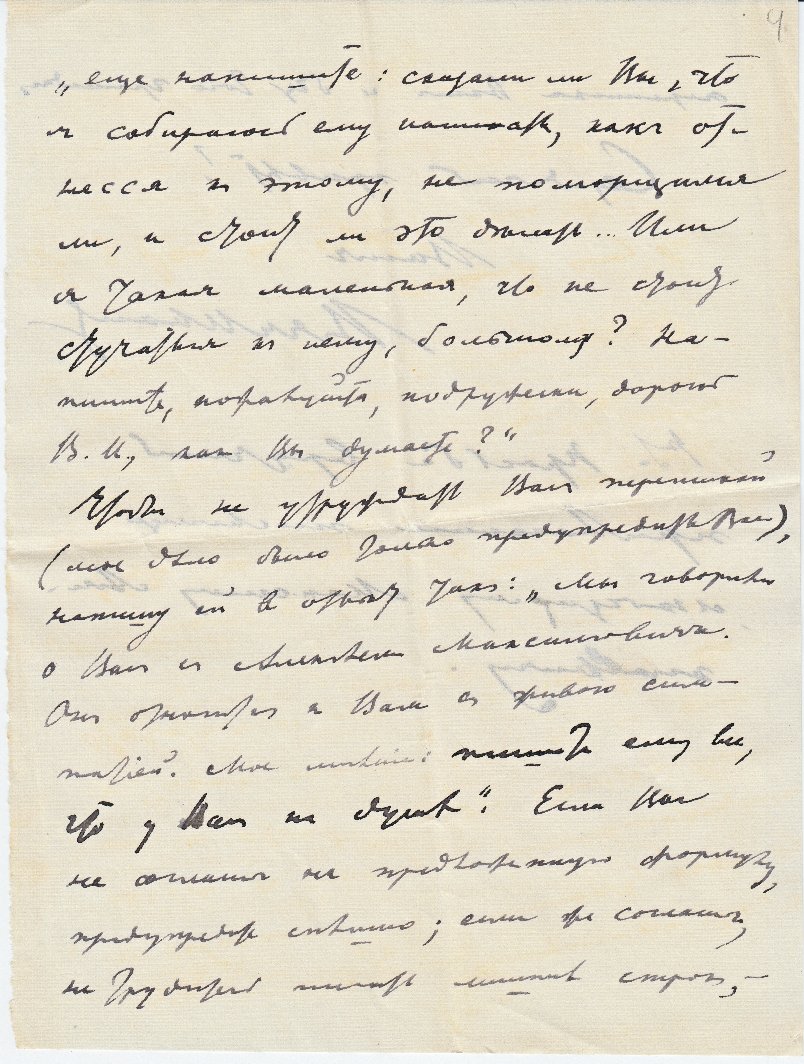 9.
„еще напишите: сказали ли Вы, что
я собираюсь ему писать, какъ от-
несся к этому, не поморщился
ли, и стоит ли это делать... Или
я такая маленькая, что не стоит
стучаться к нему, большому? На-
пишите, пожалуйста, подружески, дорогой
В. И., как Вы думаете?"
Чтобы не утруждать Вас перепиской
(мое дело было только предупредить Вас),
напишу ей в ответ так: „Мы говорили
о Вас с Алексеем Максимовичем.
Он относится к Вам с живою сим-
патией. Мое мнение: пишите ему все,
что у Вас на душе". Если Вы
не согласны на предложенную формулу,
предупредите спешно; если же согласны,
не трудитесь писать лишних строк, –